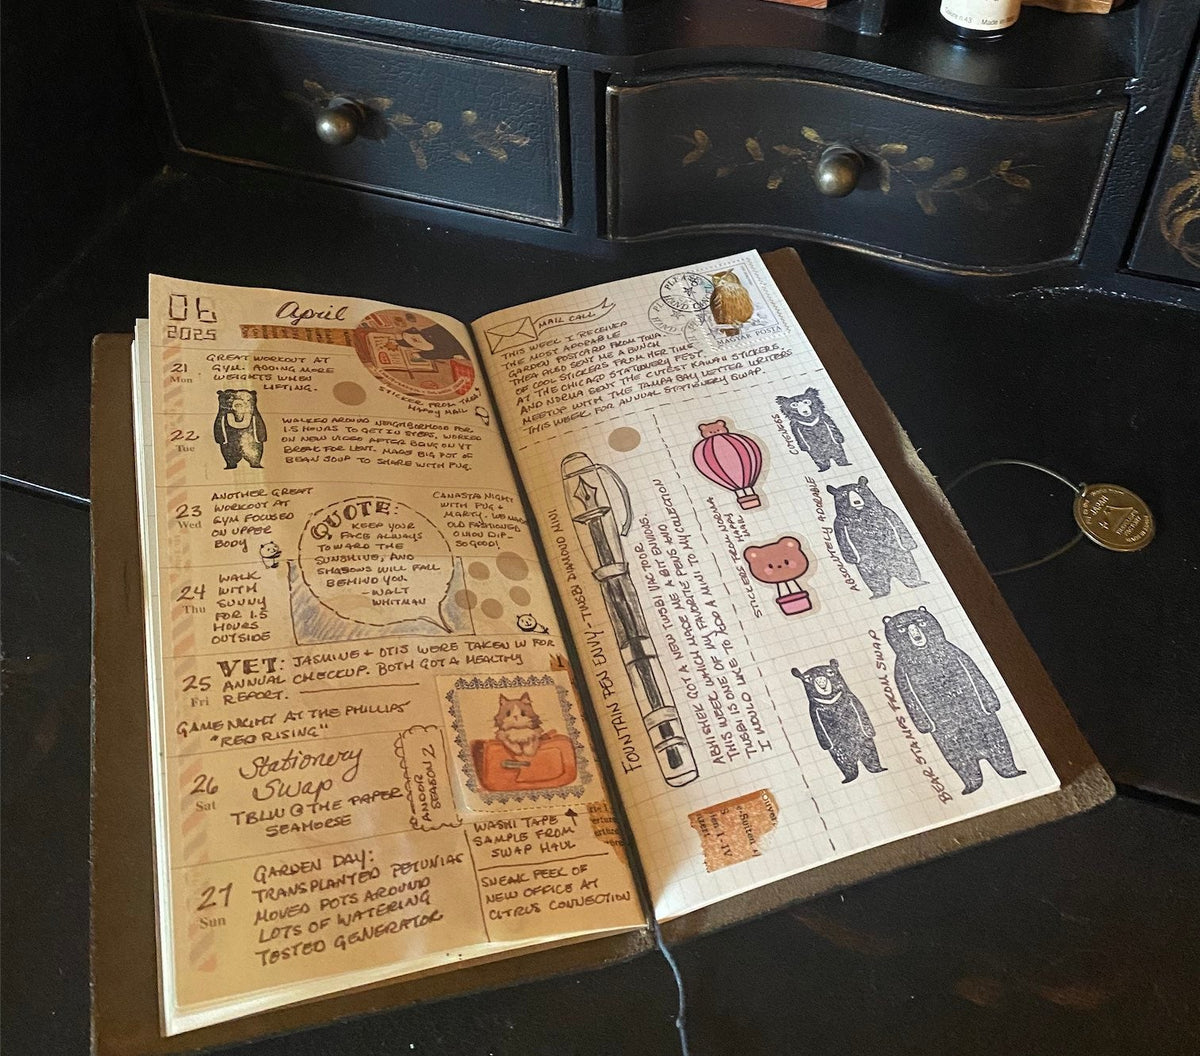 04
2025
April
21
Mon
GREAT WORKOUT AT
GYM. ADDING MORE
WEIGHTS WHEN
LIFTING.
STICKER FROM
HAPPY MAIL
22
Tue
WALKED AROUND NEIGHBORHOOD FOR
1.5 HOURS TO GET IN STEPS, WORKED
ON NEW VIDEO AFTER BEING ON YT
BREAK FOR LENT. MADE BIG POT OF
BEAN SOUP TO SHARE WITH
23
Wed
ANOTHER GREAT
WORKOUT AT
GYM FOCUSED
ON UPPER
BODY
QUOTE:
KEEP YOUR
FACE ALWAYS
TOWARD THE
SUNSHINE, AND
SHADOWS WILL FALL
BEHIND YOU.
- WALT
WHITMAN
CANASTA NIGHT
WITH +
MARTY. WE MADE
OLD FASHIONED
ONION DIP-
SO GOOD!
24
Thu
WALK
WITH
SUNNY
FOR 1.5
HOURS
OUTSIDE
25
Fri
VET: JASMINE + OTIS WERE TAKEN IN FOR
ANNUAL CHECKUP. BOTH GOT A HEALTHY
REPORT.
GAME NIGHT AT THE PHILLIPS
"RED RISING"
26
Sat
Stationery
Swap
TBLW @ THE PAPER
SEAHORSE
ANDOR
SEASON 2
WASHI TAPE
SAMPLE FROM
SWAP HAUL
27
Sun
GARDEN DAY:
TRANSPLANTED PETUNIAS
MOVED POTS AROUND
LOTS OF WATERING
TESTED GENERATOR
SNEAK PEEK OF
NEW OFFICE AT
CITRUS CONNECTION
MAIL CALL
THIS WEEK I RECEIVED
THE MOST ADORABLE
GARDEN POSTCARD FROM
ALSO SENT ME A BUNCH
OF COOL STICKERS FROM HER TIME
AT THE CHICAGO STATIONERY FEST.
AND NORMA SENT THE CUTEST KAWAII STICKERS.
MEETUP WITH THE TAMPA BAY LETTER WRITERS
THIS WEEK FOR ANNUAL STATIONERY SWAP.
MAGYAR POSTA
FOUNTAIN PEN ENVY - TWSBI DIAMOND MINI
ABHISHEK GOT A NEW TWSBI VAC 700R
THIS WEEK WHICH MADE ME A BIT ENVIOUS.
TWSBI IS ONE OF MY FAVORITE PENS AND
I WOULD LIKE TO ADD A MINI TO MY COLLECTION
STICKERS FROM NORMA
HAPPY
MAIL
CUTENESS
ABSOLUTELY ADORABLE
BEAR STAMPS FROM SWAP